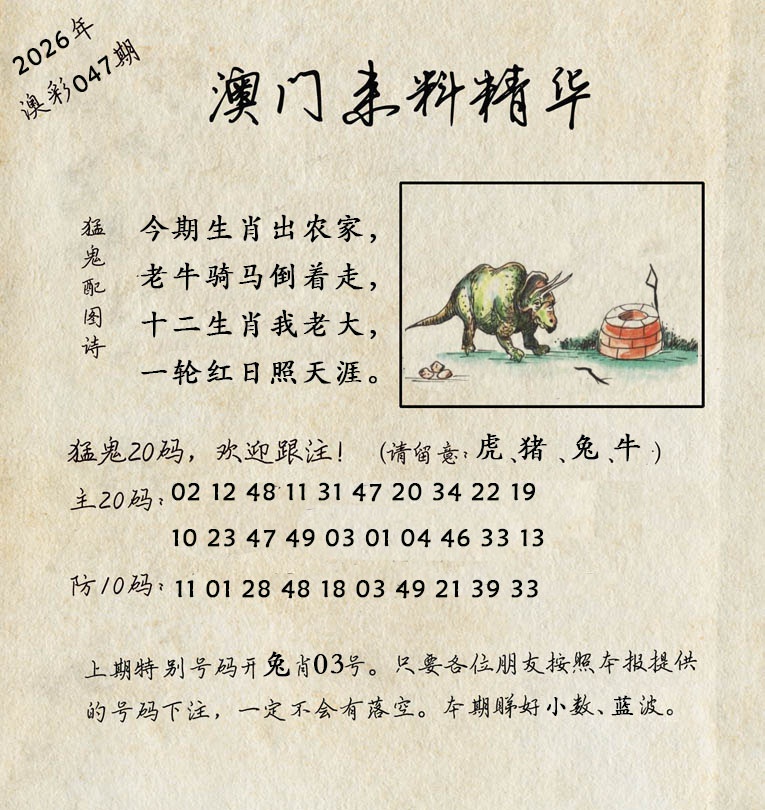 2026年
澳彩047期
澳门来料精华
猛鬼配图诗
今期生肖出农家，
老牛骑马倒着走，
十二生肖我老大，
一轮红日照天涯。
猛鬼20码，欢迎跟注！（请留意：虎、猪、兔、牛）
主20码：02 12 48 11 31 47 20 34 22 19
10 23 47 49 03 01 04 46 33 13
防10码：11 01 28 48 18 03 49 21 39 33
上期特别号码开兔肖03号。只要各位朋友按照本报提供
的号码下注，一定不会有落空。本期睇好小数、蓝波。